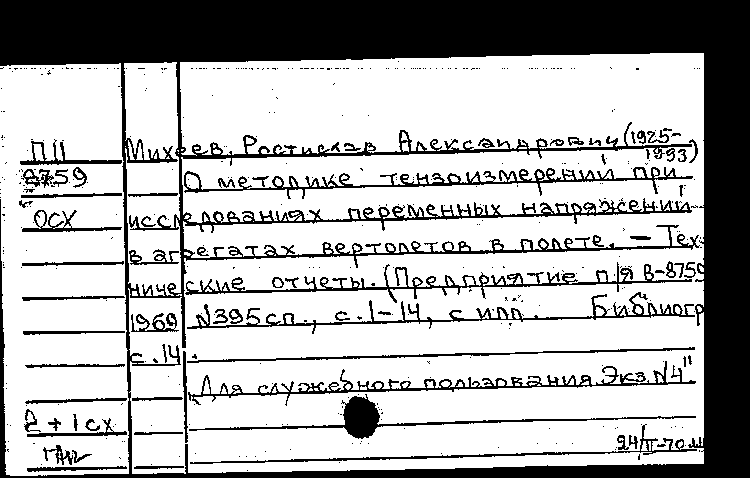 П11 Михеев, Ростислав Александрович (1925-
1993)
8759 О методике тензоизмерений при
ОСХ исследованиях переменных напряжений
в агрегатах вертолетов в полете. — Тех-
нические отчеты. (Предприятие п/я В-8759
1969 №395сп., с. 1-14, с илл. Библиогр
с. 14.
„Для служебного пользования. Экз. №4"
2 + 1 сх
24/II-70